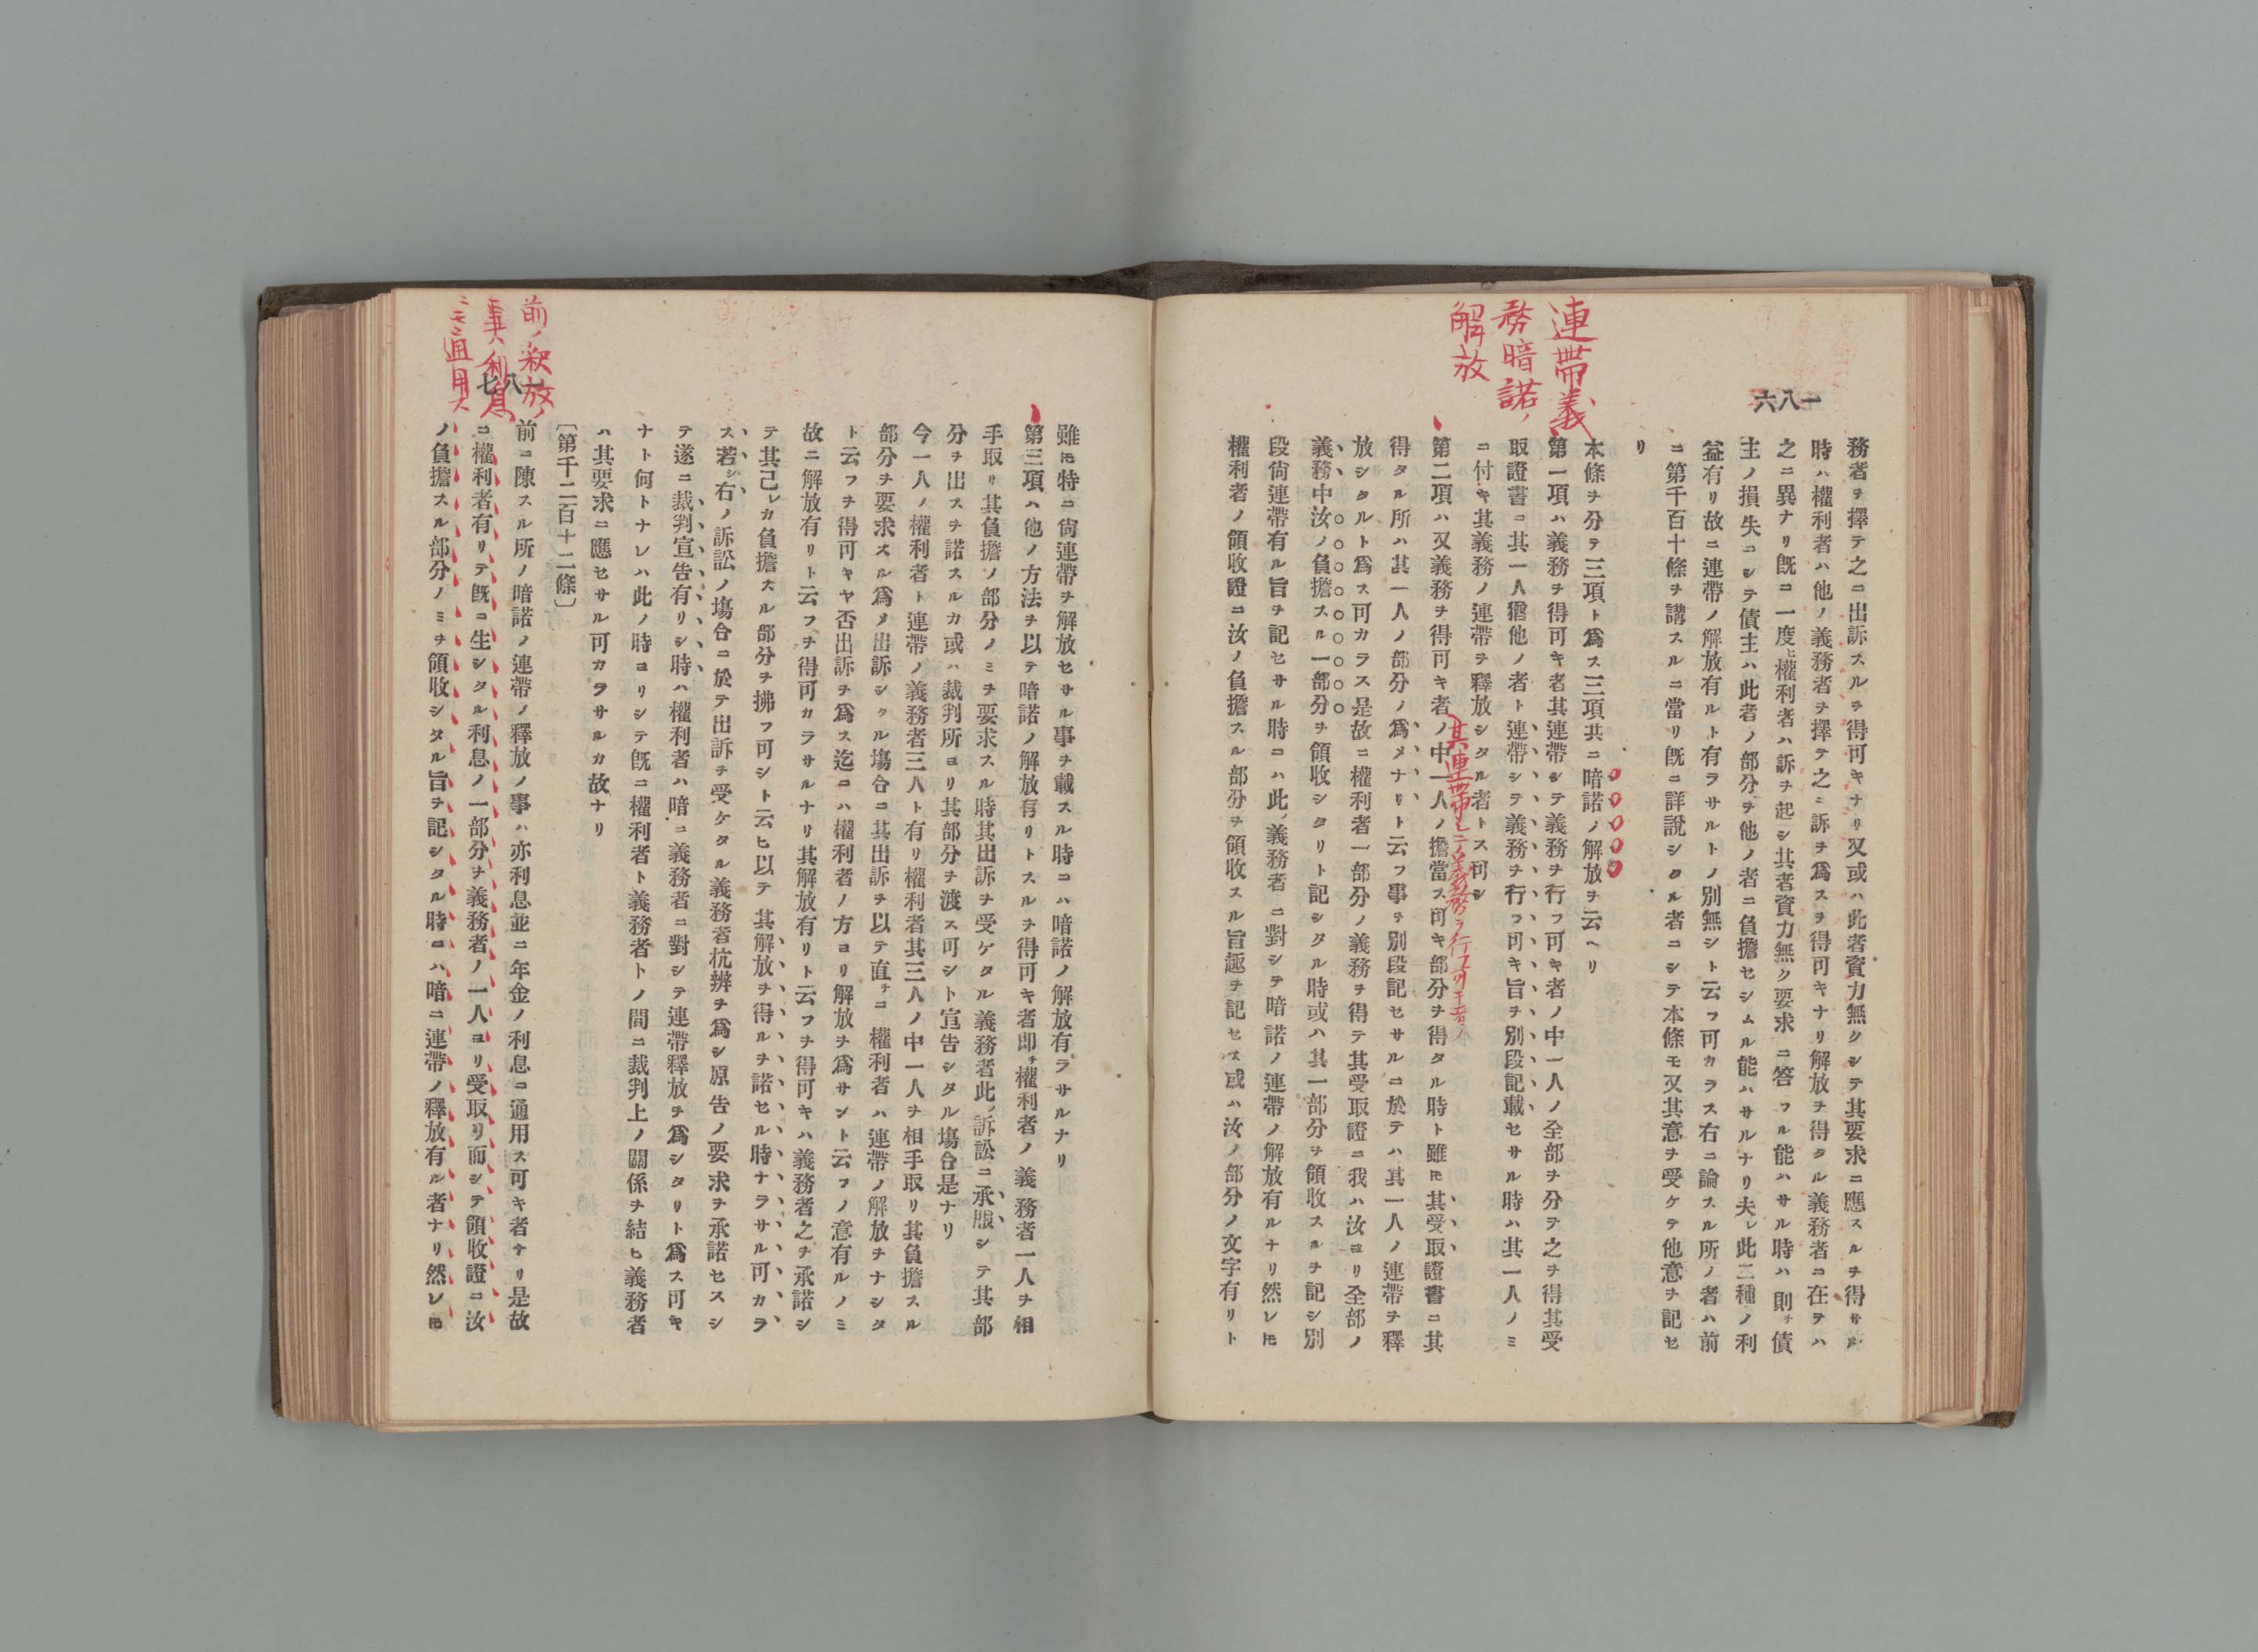 連帯義
務暗諾ノ
解放
一八六
務者ヲ擇テ之ニ出訴スルヲ得可キナリ又或ハ此者資力無クシテ其要求ニ應スルヲ得サル
時ハ權利者ハ他ノ義務者ヲ擇テ之ニ訴ヲ爲スヲ得可キナリ解放ヲ得タル義務者ニ在テハ
之ニ異ナリ旣ニ一度ヒ權利者ハ訴ヲ起シ其者資力無ク要求ニ答フル能ハサル時ハ則チ債
主ノ損失ニシテ債主ハ此者ノ部分ヲ他ノ者ニ負擔セシムル能ハサルナリ夫レ此二種ノ利
益有リ故ニ連帶ノ解放有ルト有ラサルトノ別無シト云フ可カラス右ニ論スル所ノ者ハ前
ニ第千百十條ヲ講スルニ當リ旣ニ詳說シタル者ニシテ本條モ又其意ヲ受ケテ他意ヲ記セ
リ
本條ヲ分テ三項ト爲ス三項共ニ暗諾ノ解放ヲ云ヘリ
第一項ハ義務ヲ得可キ者其連帶シテ義務ヲ行フ可キ者ノ中一人ノ全部ヲ分テ之ヲ得其受
取證書ニ其一人猶他ノ者ト連帶シテ義務ヲ行フ可キ旨ヲ別段記載セサル時ハ其一人ノミ
ニ付キ其義務ノ連帶ヲ釋放シタル者トス可シ
其連帶シテ義務ヲ行フ可キ者ノ
第二項ハ又義務ヲ得可キ者ノ中一人ノ擔當ス可キ部分ヲ得タル時ト雖𪜈其受取證書ニ其
得タル所ハ其一人ノ部分ノ爲メナリト云フ事ヲ別段記セサルニ於テハ其一人ノ連帶ヲ釋
放シタルト爲ス可カラス是故ニ權利者一部分ノ義務ヲ得テ其受取證ニ我ハ汝ヨリ全部ノ
義務中汝ノ負擔スル一部分ヲ領收シタリト記シタル時或ハ其一部分ヲ領收スルヲ記シ別
段尙連帶有ル旨ヲ記セサル時ニハ此ノ義務者ニ對シテ暗諾ノ連帶ノ解放有ルナリ然レ𪜈
權利者ノ領收證ニ汝ノ負擔スル部分ヲ領收スル旨趣ヲ記セス或ハ汝ノ部分ノ文字有リト
雖𪜈特ニ尙連帶ヲ解放セサル事ヲ載スル時ニハ暗諾ノ解放有ラサルナリ
第三項ハ他ノ方法ヲ以テ暗諾ノ解放有リトスルヲ得可キ者即チ權利者ノ義務者一人ヲ相
手取リ其負擔ノ部分ノミヲ要求スル時其出訴ヲ受ケタル義務者此ノ訴訟ニ承服シテ其部
分ヲ出スヲ諾スルカ或ハ裁判所ヨリ其部分ヲ渡ス可シト宣告シタル塲合是ナリ
今一人ノ權利者ト連帶ノ義務者三人ト有リ權利者其三人ノ中一人ヲ相手取リ其負擔スル
部分ヲ要求スル爲メ出訴シタル塲合ニ其出訴ヲ以テ直チニ權利者ハ連帶ノ解放ヲナシタ
ト云フヲ得可キヤ否出訴ヲ爲ス迄ニハ權利者ノ方ヨリ解放ヲ爲サント云フノ意有ルノミ
故ニ解放有リト云フヲ得可カラサルナリ其解放有リト云フヲ得可キハ義務者之ヲ承諾シ
テ其己レカ負擔スル部分ヲ拂フ可シト云ヒ以テ其解放ヲ得ルヲ諾セル時ナラサル可カラ
ス若シ右ノ訴訟ノ塲合ニ於テ出訴ヲ受ケタル義務者抗辨ヲ爲シ原告ノ要求ヲ承諾セスシ
テ遂ニ裁判宣告有リシ時ハ權利者ハ暗ニ義務者ニ對シテ連帶釋放ヲ爲シタリト爲ス可キ
ナト何トナレハ此ノ時ヨリシテ旣ニ權利者ト義務者トノ間ニ裁判上ノ關係ヲ結ヒ義務者
ハ其要求ニ應セサル可カラサルカ故ナリ
〔第千二百十二條〕
前ニ陳スル所ノ暗諾ノ連帶ノ釋放ノ事ハ亦利息並ニ年金ノ利息ニ通用ス可キ者ナリ是故
ニ權利者有リテ旣ニ生シタル利息ノ一部分ヲ義務者ノ一人ヨリ受取リ而シテ領收證ニ汝
ノ負擔スル部分ノミヲ領收シタル旨ヲ記シタル時ニハ暗ニ連帶ノ釋放有ル者ナリ然レ𪜈
前ノ釈放ノ
事ハ利息
ニモ通用ス
一八七